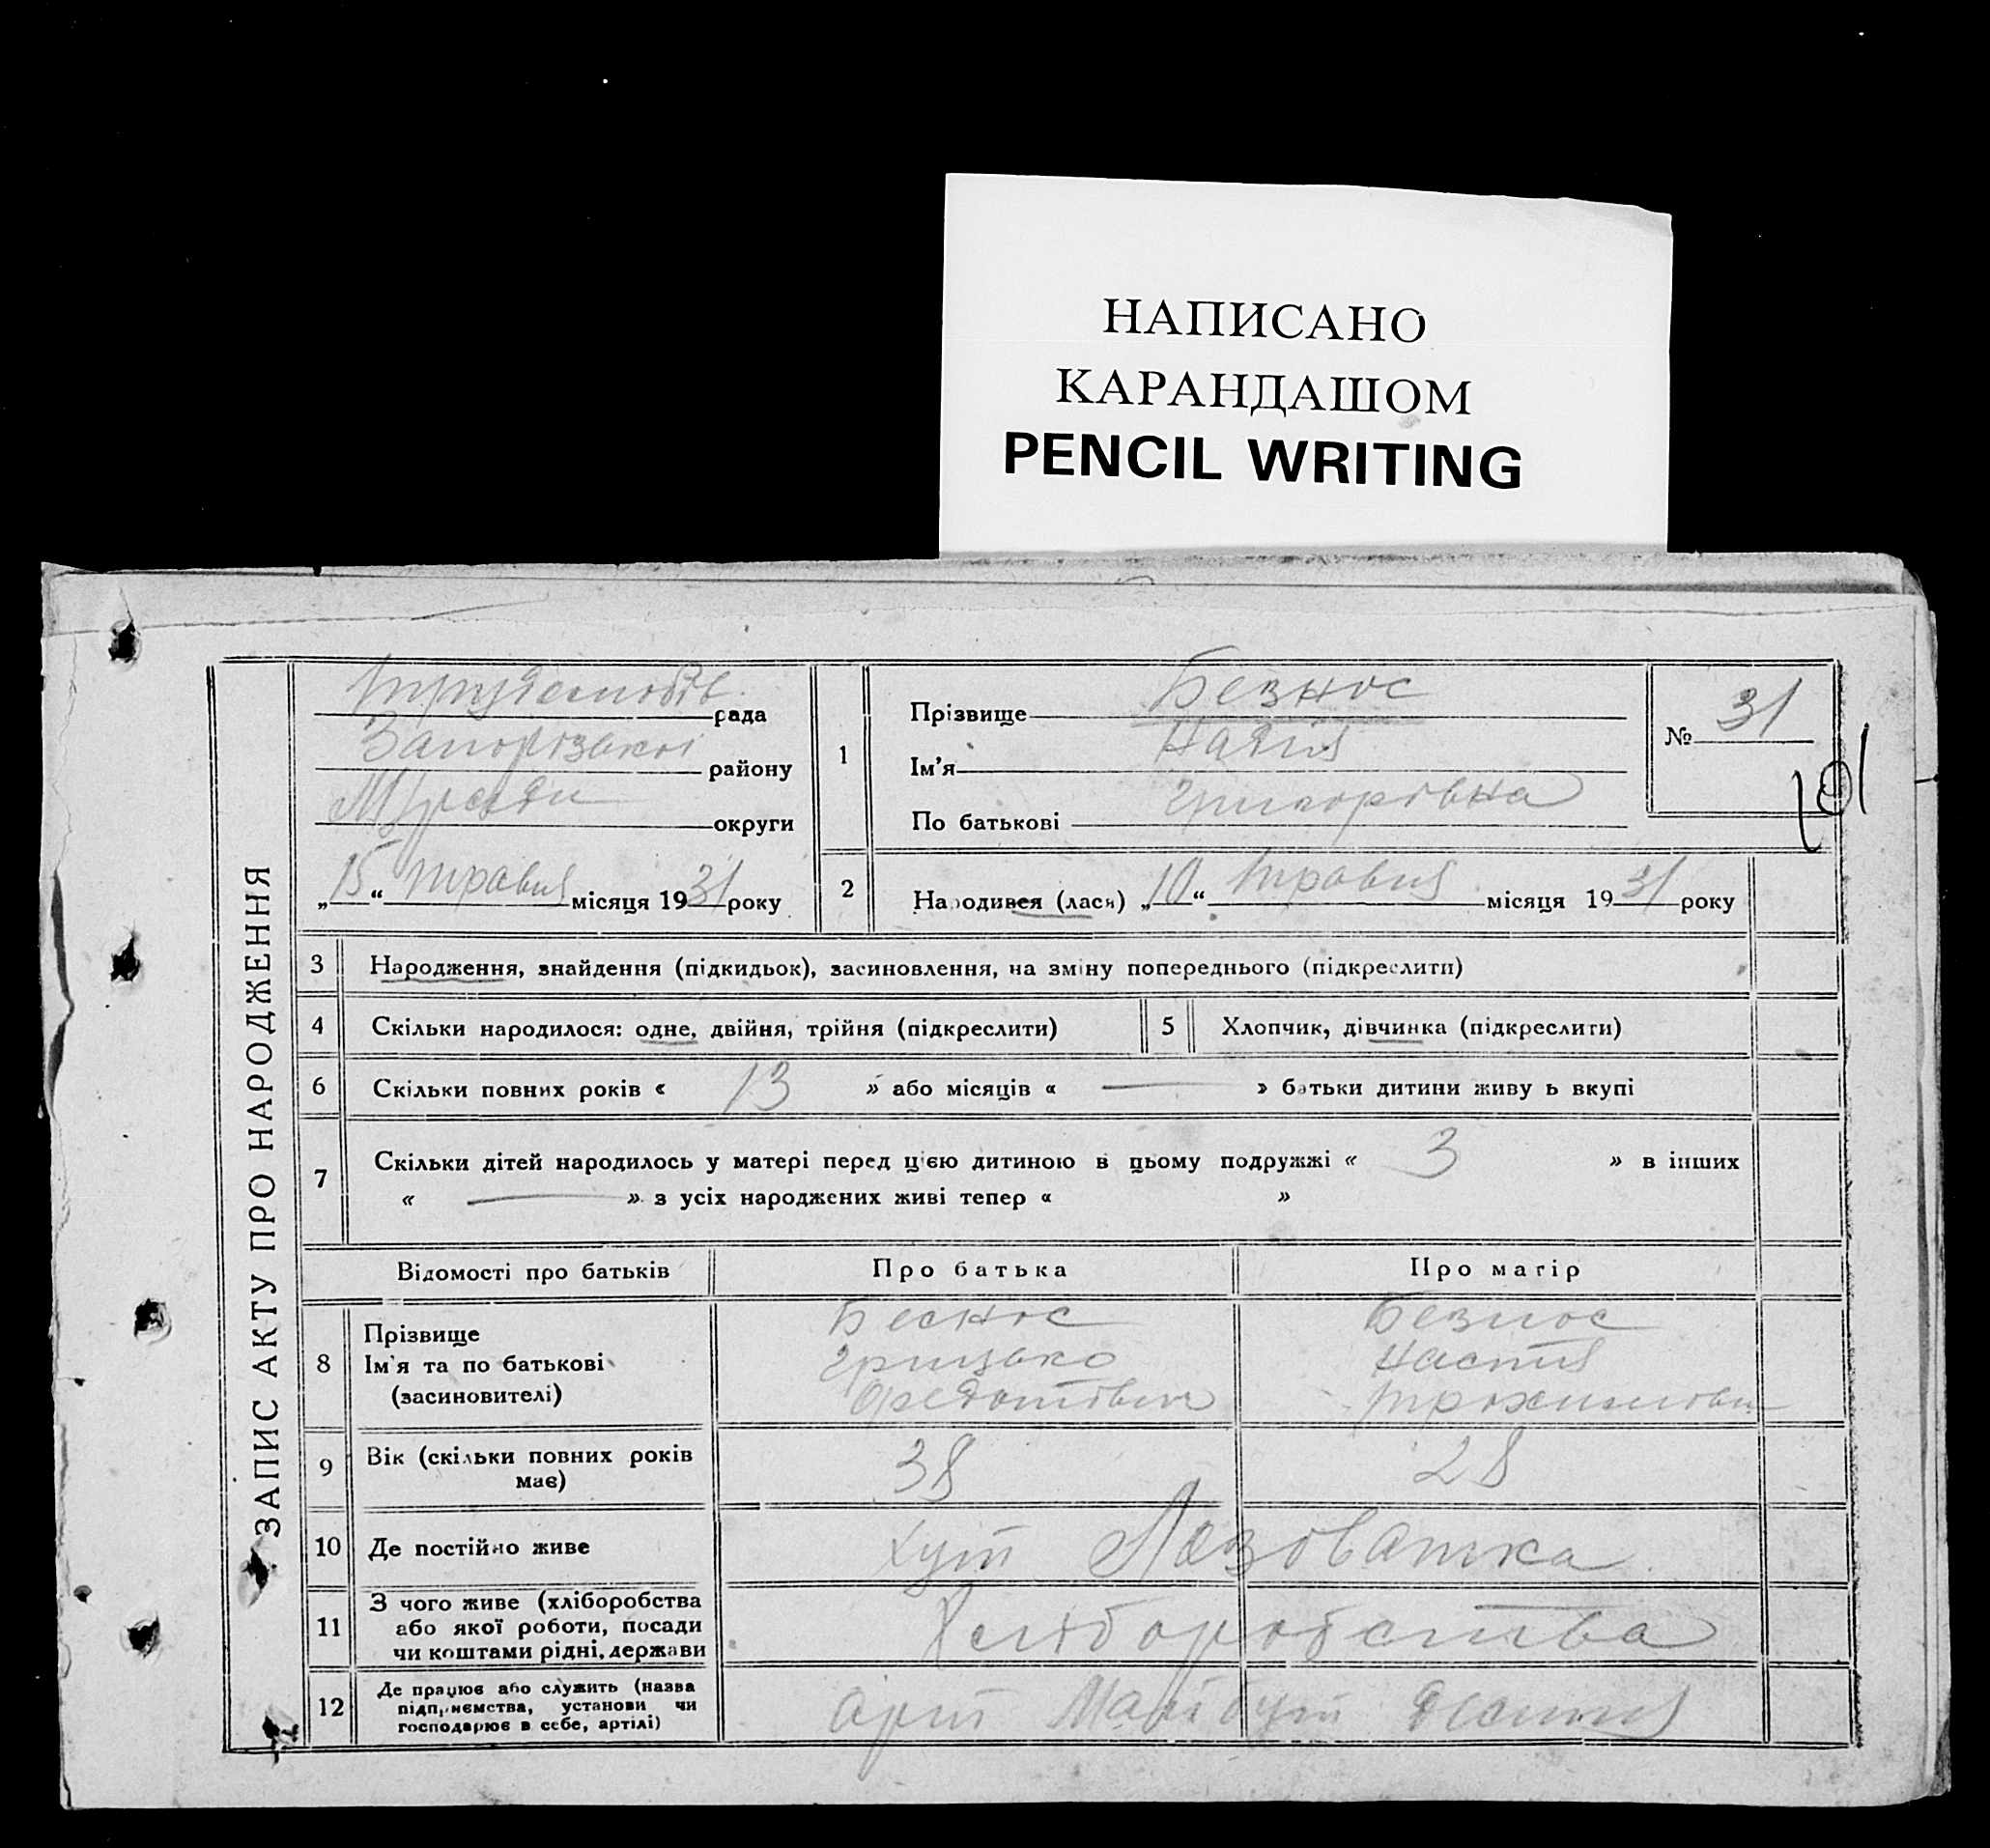 НАПИСАНО
КАРАНДАШОМ
PENCIL WRITING
ЗАПИС АКТУ ПРО НАРОДЖЕННЯ
рада
Запорізької району
округи
„15“ травня місяця 1931 року
1
Прізвище Безнос
Ім'я Надія
По батькові Григорівна
№ 31
101
2 Народився (лася) „10“ травня місяця 1931 року
3 Народження, знайдення (підкидьок), засиновлення, на зміну попереднього (підкреслити)
4 Скільки народилося: одне, двійня, трійня (підкреслити)
5 Хлопчик, дівчинка (підкреслити)
6 Скільки повних років « 13 » або місяців « — » батьки дитини живу ь вкупі
7 Скільки дітей народилось у матері перед цією дитиною в цьому подружжі « 3 » в інших
« — » з усіх народжених живі тепер « »
Відомості про батьків Про батька Про матір
8 Прізвище Беснос Безнос
Ім'я та по батькові Грицько Настя
(засиновителі) Федотович
9 Вік (скільки повних років має) 38 28
10 Де постійно живе хут Лозоватка
11 З чого живе (хліборобства
або якої роботи, посади
чи коштами рідні, держави
Хліборобства
12 Де працює або служить (назва
підприємства, установи чи
господарює в себе, артілі)
арт